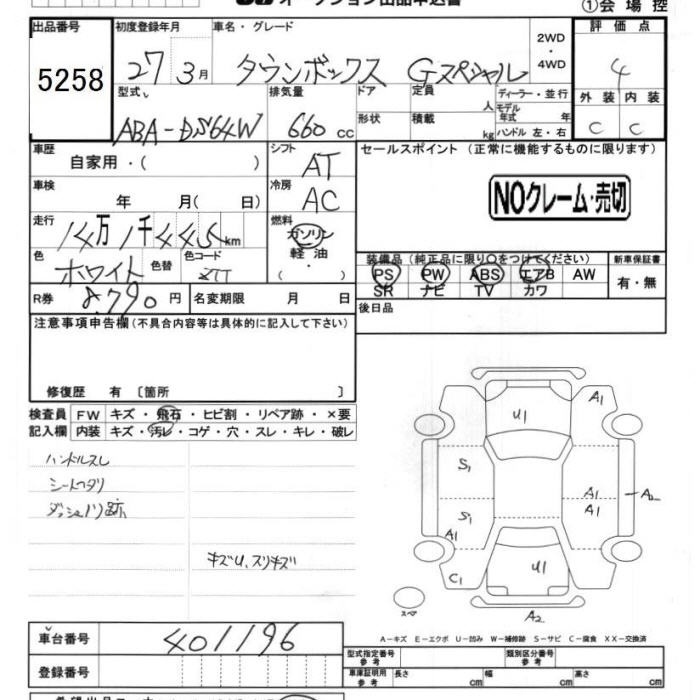 オークション出品申込書
①会場控
出品番号
5258
初度登録年月
27 3月
車名・グレード
タウンボックス Gスペシャル
2WD
・
4WD
評価点
4
外装 内装
C C
型式
ABA-DS64W
排気量
660 cc
ドア
形状
定員 人
積載 kg
ディーラー・並行
モデル年式 年
ハンドル 左・右
車歴
自家用・( )
シフト
AT
車検
年 月( 日)
冷房
AC
走行
14万1千445km
燃料
ガソリン
・
軽油
・
色
ホワイト
色替
色コード
R券
8,790円
名変期限 月 日
セールスポイント (正常に機能するものに限ります)
NOクレーム・売切
装備品(純正品に限り○をつけてください)
新車保証書
PS PW ABS エアB AW
SR ナビ TV カワ
有・無
後日品
注意事項申告欄(不具合内容等は具体的に記入して下さい)
修復歴 有 〔箇所 〕
検査員 FW キズ・飛石・ヒビ割・リペア跡・×要
記入欄 内装 キズ・汚レ・コゲ・穴・スレ・キレ・破レ
ハンドルスレ
シートヘタリ
ダッシュノリ跡
キズU、スリキズ
A1
U1
S1
A1
A1
A2
S1
A1
C1
U1
A2
スペア
A-キズ E-エクボ U-凹み W-補修跡 S-サビ C-腐食 XX-交換済
車台番号
401196
登録番号
型式指定番号
参考
類別区分番号
参考
車庫証明用
参考
長さ cm
幅 cm
高さ cm